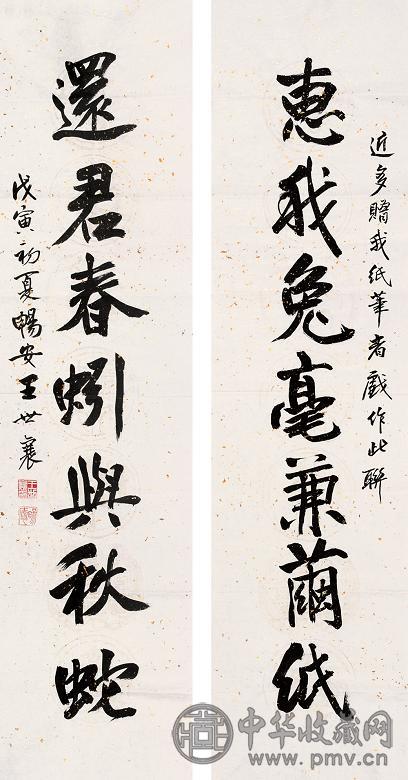 近多贈我紙筆者戲作此聯
惠我兔毫兼繭紙
還君春蚓與秋蛇
戊寅初夏暢安王世襄
中华收藏网
www.pmv.cn